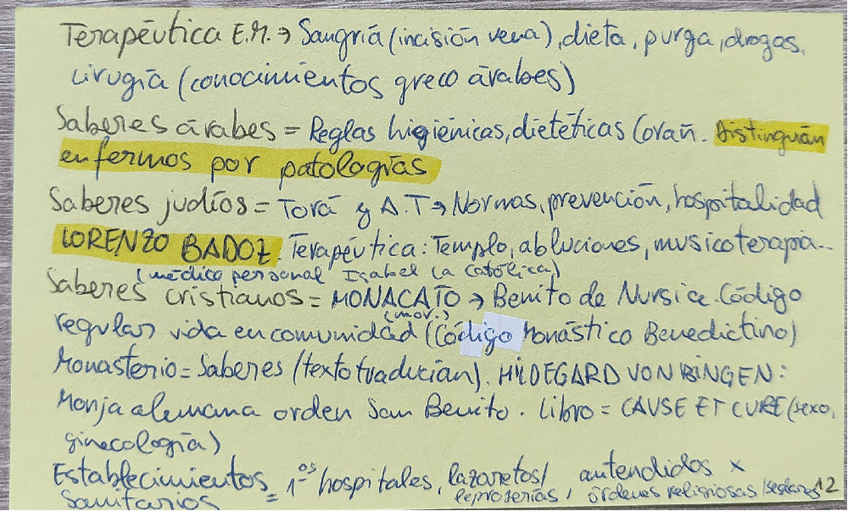 Terapéutica E.M. → Sangría (incisión vena), dieta, purga, drogas,
cirugía (conocimientos greco árabes)
Saberes árabes = Reglas higiénicas, dietéticas Corán. Distinguían
enfermos por patologías
Saberes judíos = Torá y A.T → Normas, prevención, hospitalidad
LORENZO BADOZ. Terapéutica: Templo, abluciones, musicoterapia...
(médico personal Isabel la Católica)
Saberes cristianos = MONACATO → Benito de Nursia. Código
(mov.)
regular vida en comunidad (Código Monástico Benedictino)
Monasterio = Saberes (texto traducían). HILDEGARD VON BINGEN:
Monja alemana orden San Benito. Libro = CAUSE ET CURE (sexo,
ginecología)
Establecimientos = 1os hospitales, lazaretos/ antendidos x
Sanitarios leproserías, órdenes religiosas/seglares 12